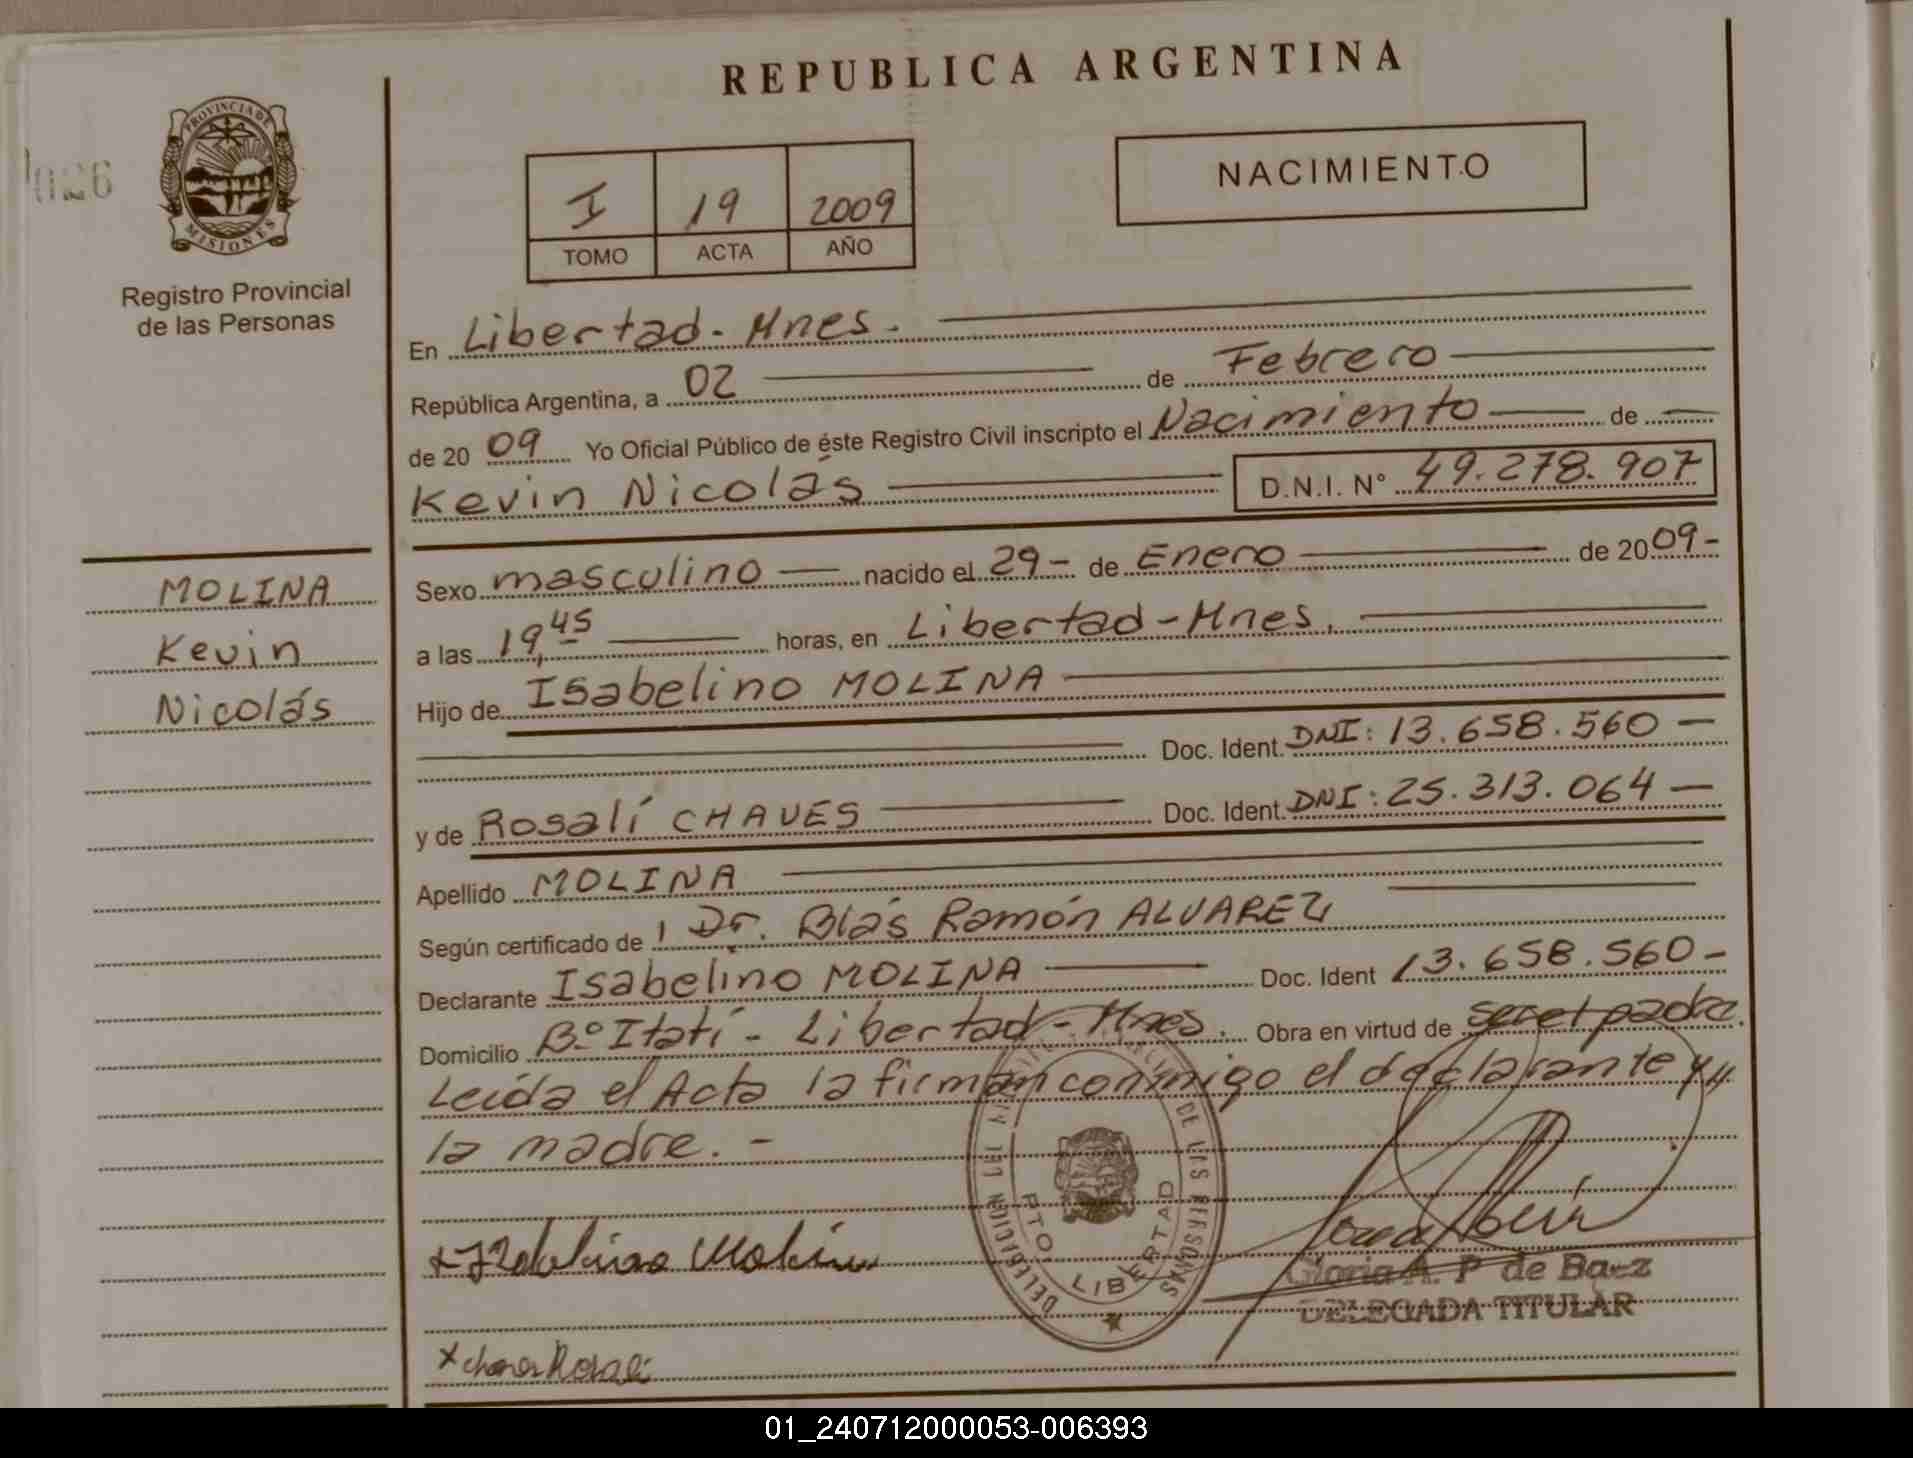 REPUBLICA ARGENTINA
026
PROVINCIA DE
MISIONES
Registro Provincial
de las Personas
I 19 2009
TOMO ACTA AÑO
NACIMIENTO
En Libertad - Mnes.
República Argentina, a 02 de Febrero
de 20 09 Yo Oficial Público de éste Registro Civil inscripto el Nacimiento de
Kevin Nicolás D.N.I. N° 49.278.907
MOLINA
Kevin
Nicolás
Sexo masculino nacido el 29 - de Enero de 20 09 -
a las 19,45 horas, en Libertad - Mnes.
Hijo de Isabelino MOLINA
Doc. Ident. DNI: 13.658.560 -
y de Rosalí CHAVES Doc. Ident. DNI: 25.313.064 -
Apellido MOLINA
Según certificado de Dr. Blás Ramón ALVAREZ
Declarante Isabelino MOLINA Doc. Ident 13.658.560 -
Domicilio B° Itatí - Libertad - Mnes. Obra en virtud de ser el padre.
Leída el Acta la firman conmigo el declarante y
la madre. -
DE LAS PERSONAS
DELEGACION
PTO LIBERTAD
x Molina
Gloria A. P de Baez
DELEGADA TITULAR
x Rosali
01_240712000053-006393